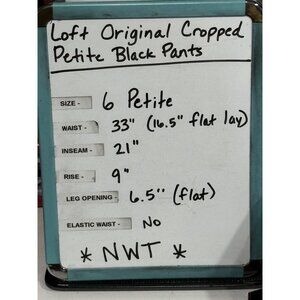 Loft Original Cropped
Petite Black Pants
SIZE - 6 Petite
WAIST - 33" (16.5" flat lay)
INSEAM - 21"
RISE - 9"
LEG OPENING - 6.5" (flat)
ELASTIC WAIST - No
* NWT *